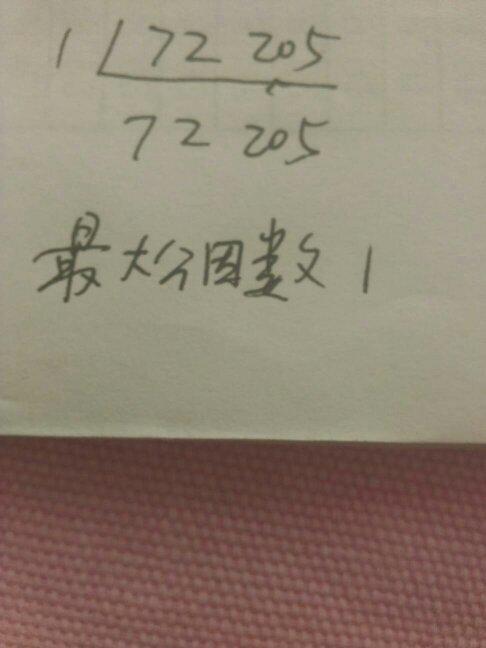 1 72 205
72 205
最大公因数 1